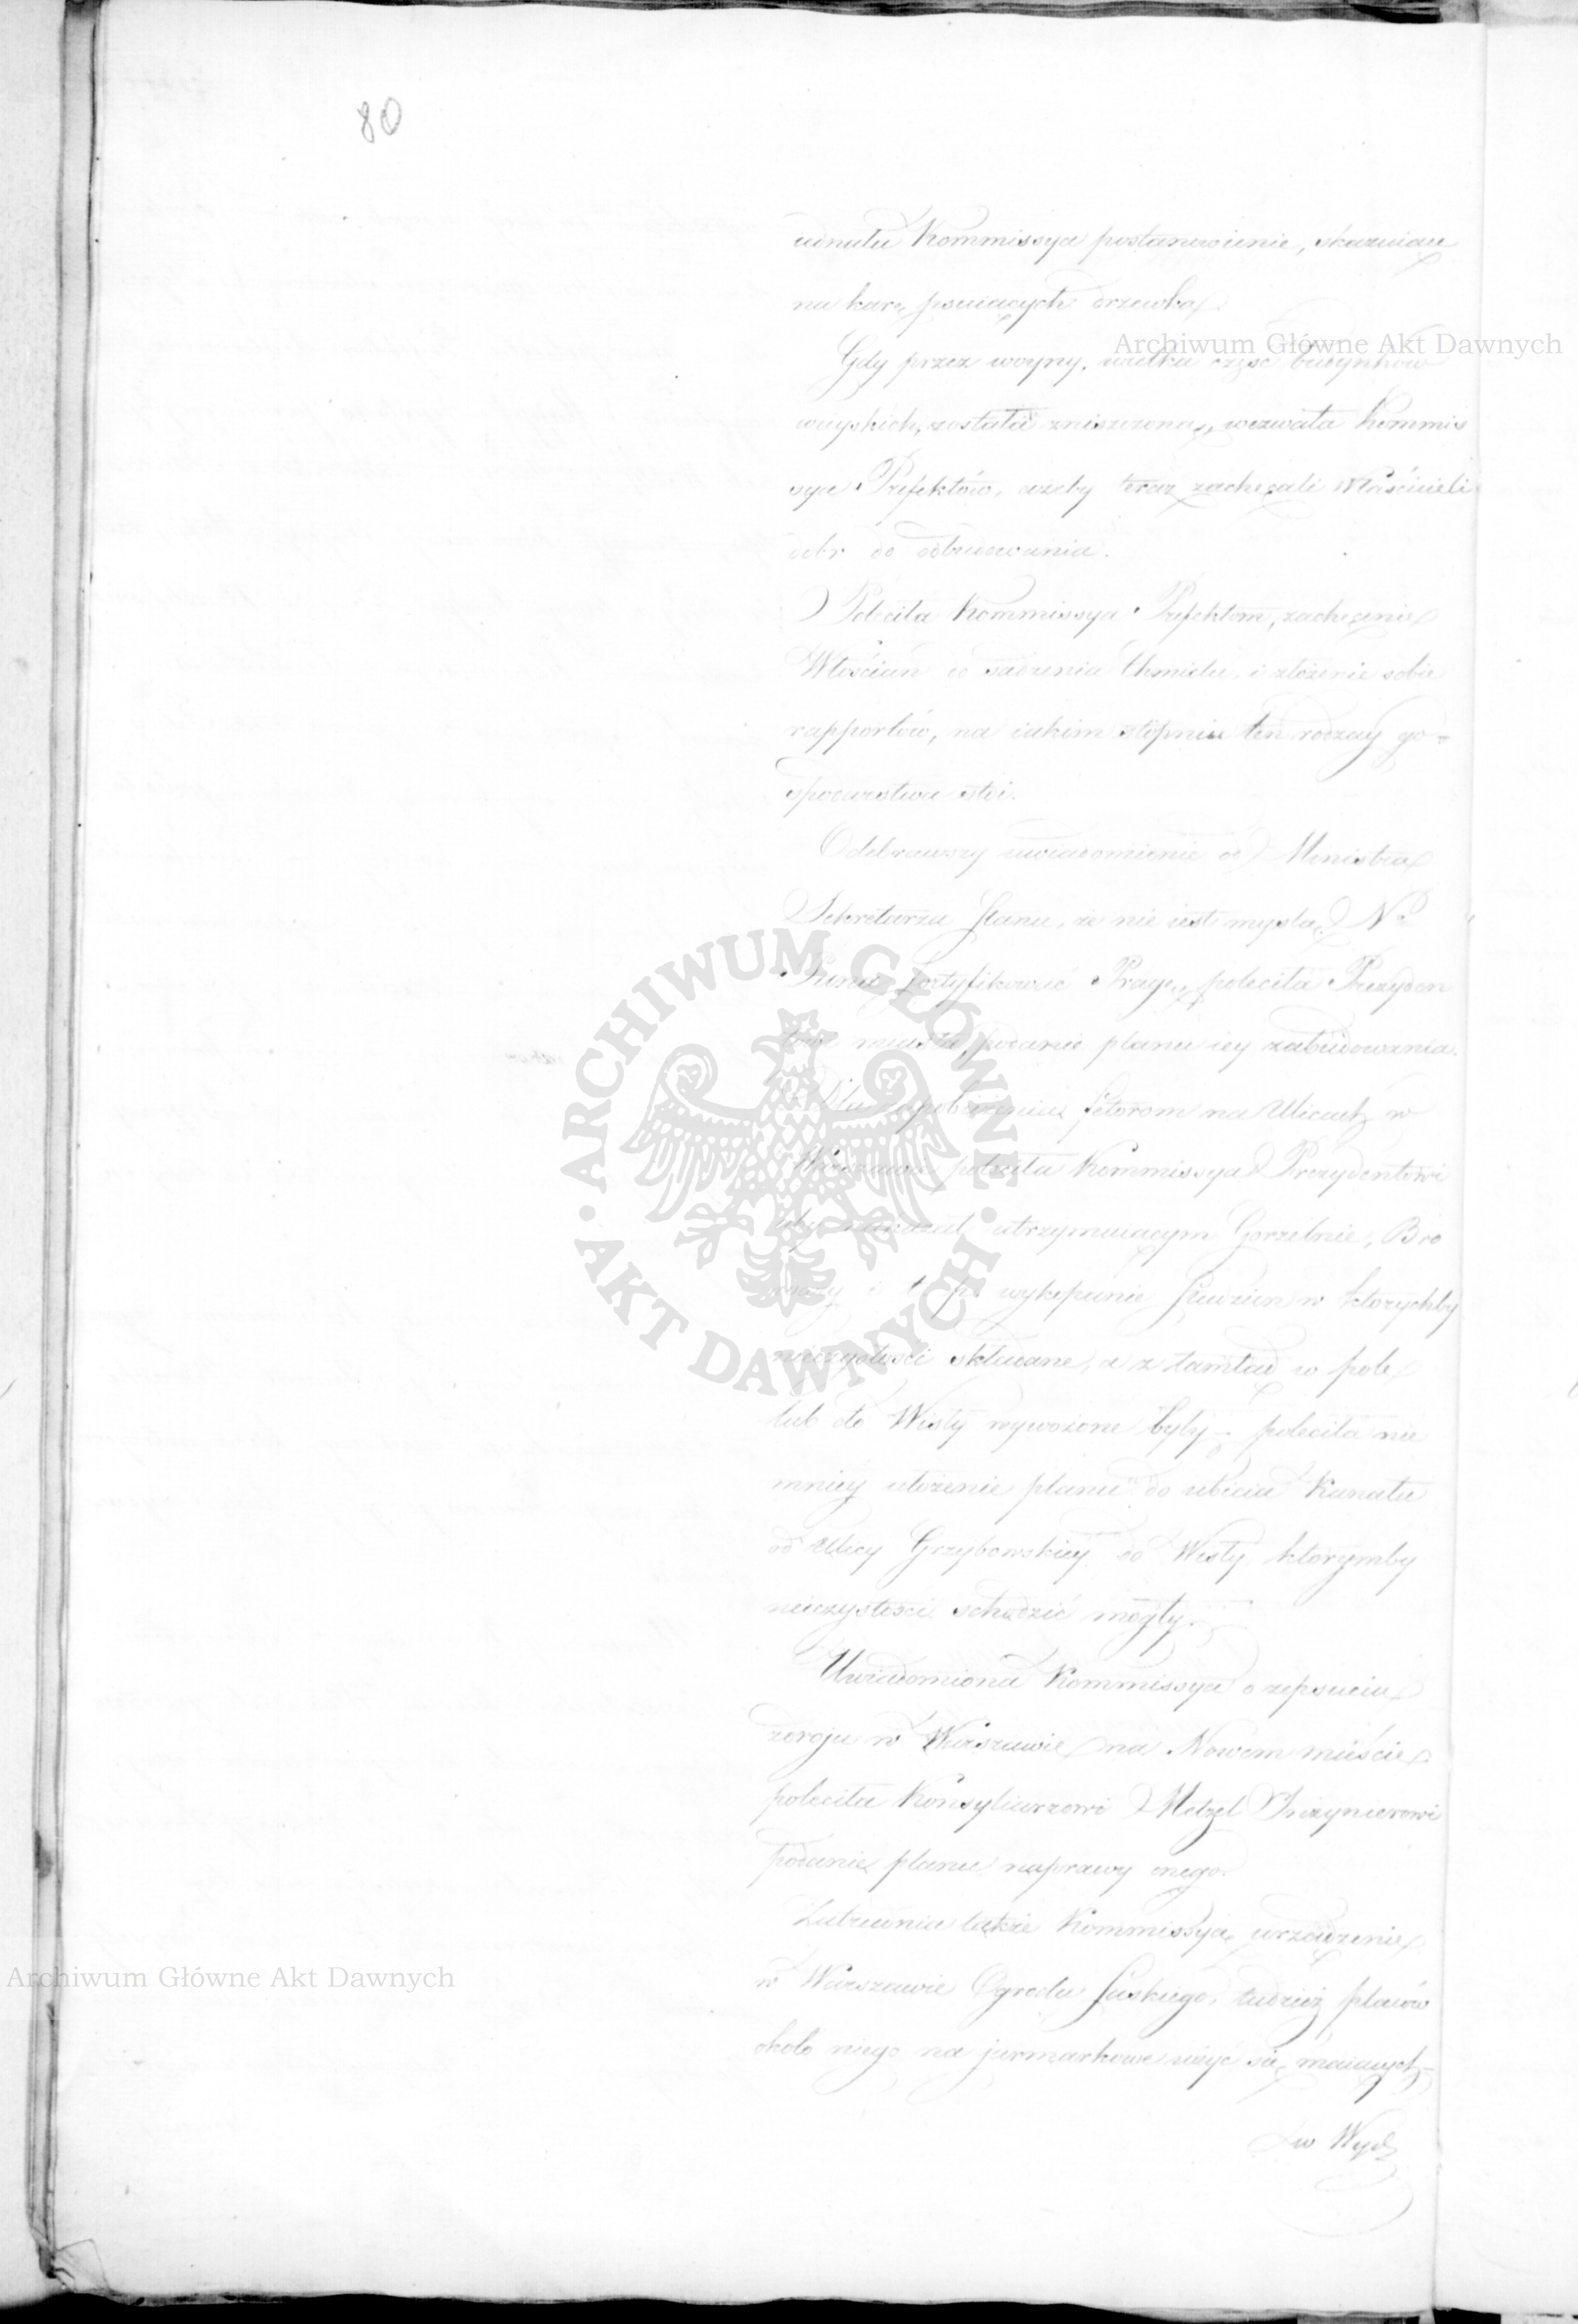 80
Kommissya postanowienie, skazuiące
na karę psuiących drzewka.
Archiwum Główne Akt Dawnych
Gdy przez woyny, wielka część budynków
wieyskich, została zniszczona, wezwała Kommis
sya Prefektów, ażeby teraz zachęcali Właścicieli
dobr do odbudowania.
Poleciła Kommissya Prefektom, zachęcenie
Włościan do sadzenia Chmielu, i złożenie sobie
rapportów, na iakim stopniu ten rodzay go-
spodarstwa stoi.
Odebrawszy uwiadomienie od Ministra
Sekretarza Stanu, że nie iest myślą N.
Pana fortyfikować Pragę, poleciła Prezyden
towi miasta, podanie planu iey zabudowania.
Dla zapobieżenia fetorom na Ulicach w
Warszawie poleciła Kommissya Prezydentowi
aby nakazał utrzymuiącym Gorzelnie, Bro
wary i t. p. wykopanie Studzien w którychby
nieczystości składane, a z tamtąd w pole
lub do Wisły wywożone były – poleciła nie
mniey ułożenie planu do ubicia Kanału
od Ulicy Grzybowskiey do Wisły którymby
nieczystości schodzić mogły.
Uwiadomiona Kommissya o zepsuciu
zdroju w Warszawie na Nowem mieście
poleciła Konsyliarzowi Metzel Inżynierowi
podanie planu naprawy onego.
Zatrudnia także Kommissyą urządzenie
w Warszawie Ogrodu Saskiego, tudzież placów
około niego na jarmarkowe użyć się maiących –
w Wydz
ARCHIWUM GŁÓWNE
AKT DAWNYCH
Archiwum Główne Akt Dawnych